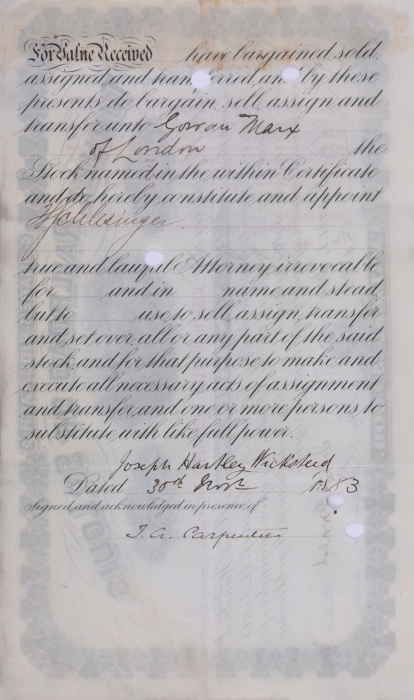 For Value Received have bargained, sold,
assigned and transferred, and by these
presents, do bargain, sell, assign and
transfer unto Gowan Marx
of London the
Stock named in the within Certificate
and do hereby constitute and appoint
Schlesinger
true and lawful Attorney, irrevocable
for and in name and stead
but to use, to sell, assign, transfer
and set over, all or any part of the said
stock, and for that purpose to make and
execute all necessary acts of assignment
and transfer, and one or more persons to
substitute with like full power.
Joseph Hartley Wicksteed
Dated 30th 1883
Signed, and acknowledged in presence of
T. A. Carpenter